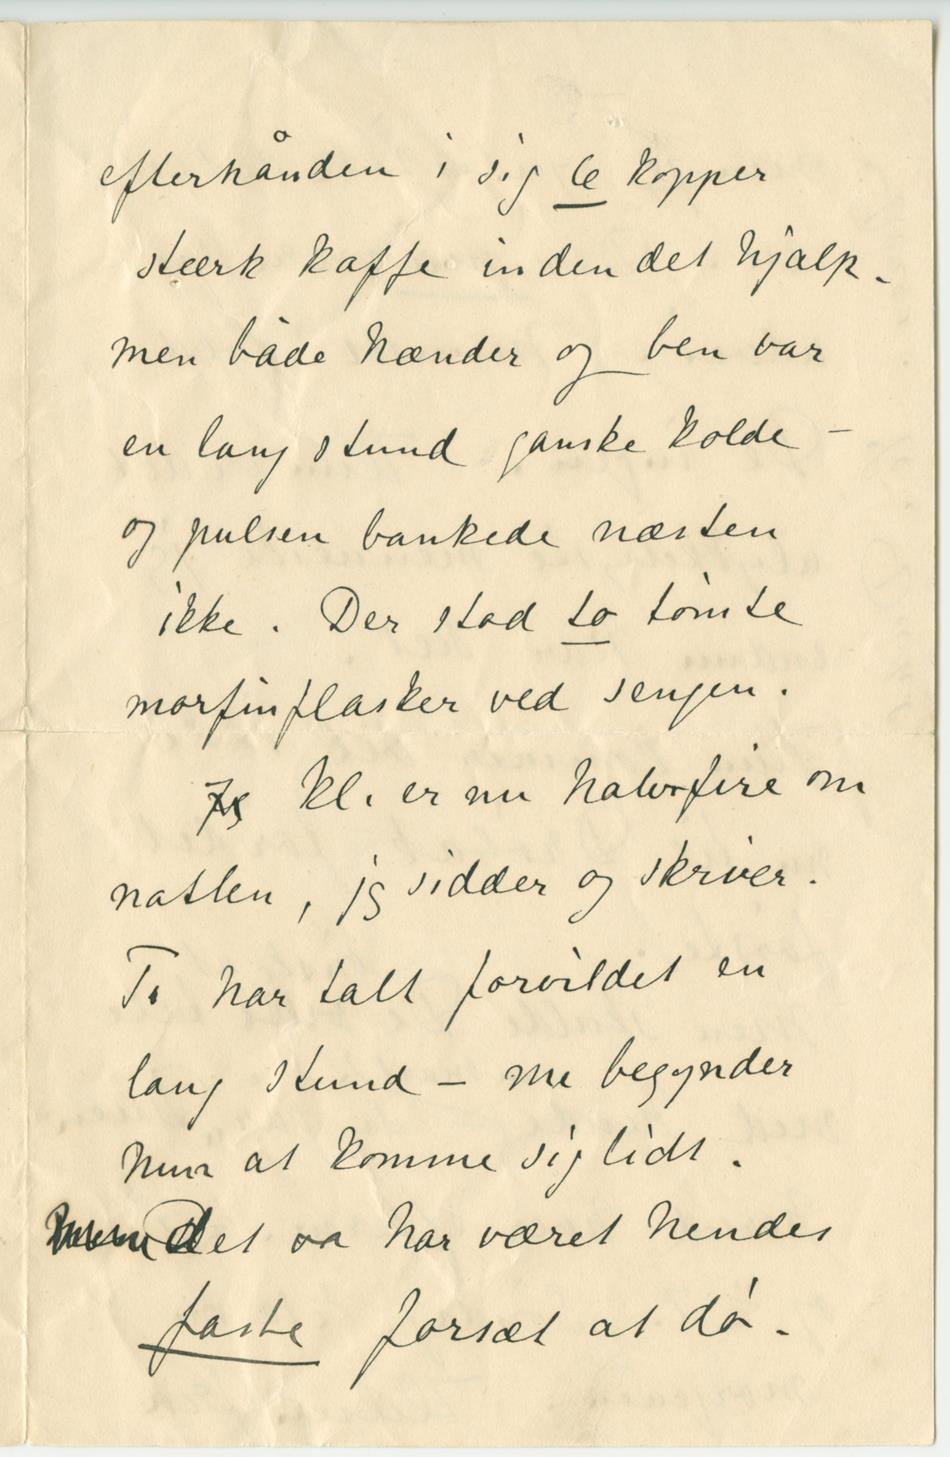 efterhånden i sig 6 kopper
stærk kaffe inden det hjalp.
men både hænder og ben var
en lang stund ganske kolde –
og pulsen bankede næsten
ikke. Der stod to tømte
morfinflasker ved sengen.
Jeg Kl. er nu halvfire om
natten, jeg sidder og skriver.
T. har talt forvildet en
lang stund – nu begynder
hun at komme sig lidt.
Det har været hendes
faste forsæt at dø.